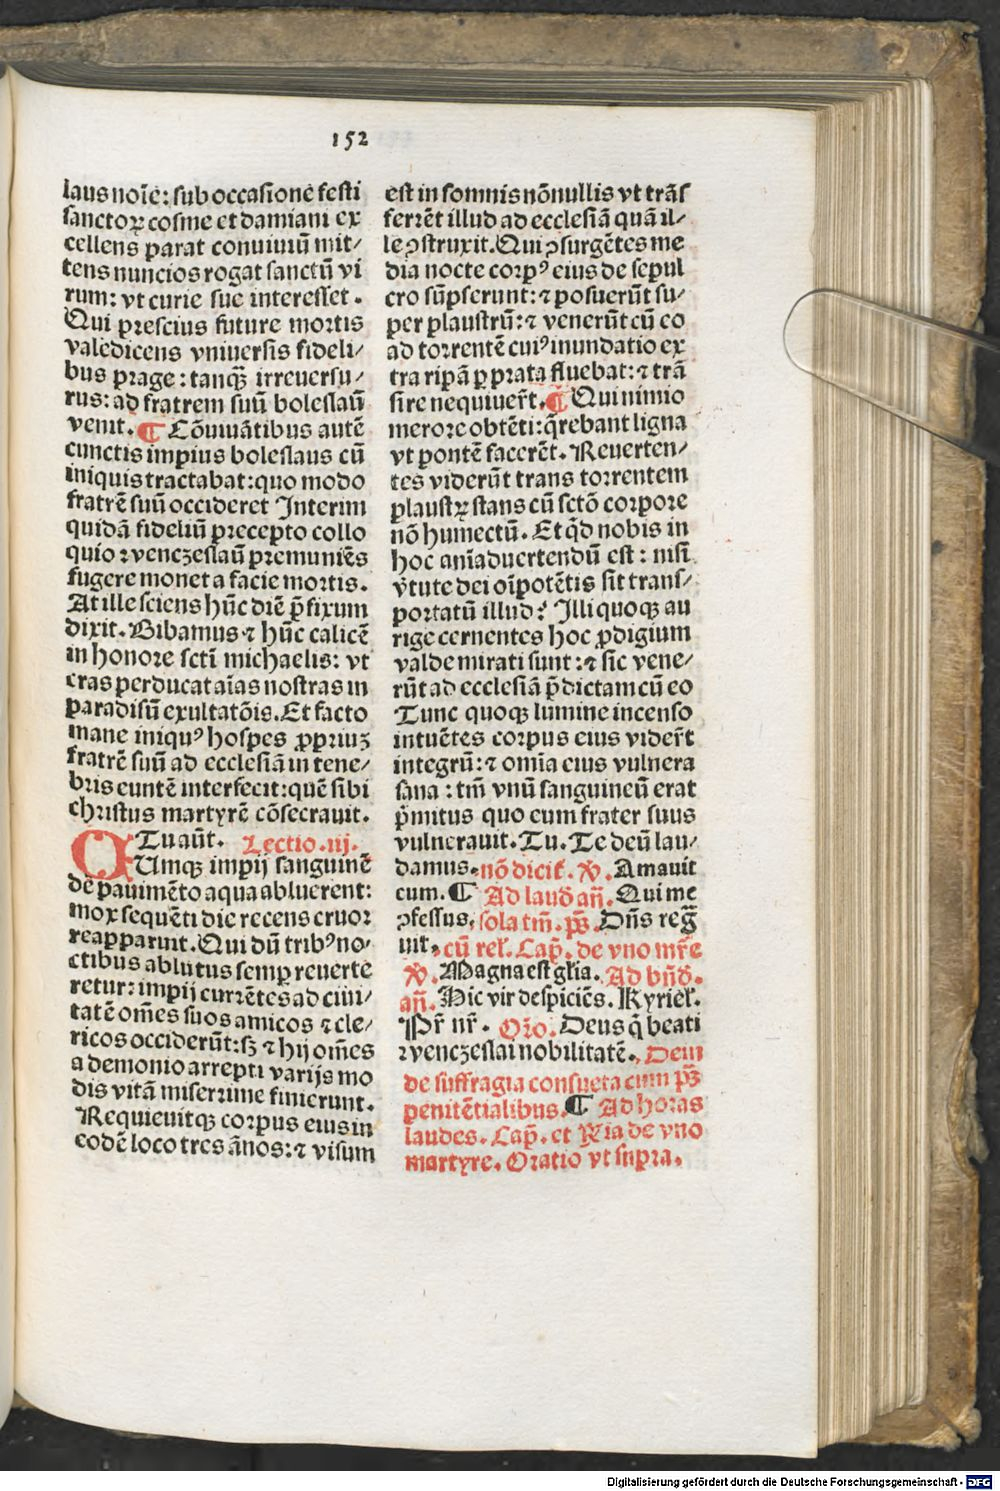 152
laus noīe: sub occasione festi
sanctoꝝ cosme et damiani ex
cellens parat conuiuiū mit/
tens nuncios rogat sanctū vi
rum: vt curie sue interesset.
Qui prescius future mortis
valedicens vniuersis fideli/
bus prage: tanqꝫ irreuersu/
rus: ad fratrem suū boleslaū
venit. ¶ Cōuiuātibus autē
cunctis impius boleslaus cū
iniquis tractabat: quo modo
fratrē suū occideret Interim
quidā fideliū precepto collo
quio wenczeslaū premuniēs
fugere monet a facie mortis.
At ille sciens hūc diē p̄fixum
dixit. Bibamus ⁊ hūc calicē
in honore scti michaelis: vt
cras perducat aīas nostras in
paradisū exultatōis. Et facto
mane iniquꝰ hospes ꝓpriuꝫ
fratrē suū ad ecclesiā in tene/
bris euntē interfecit: quē sibi
christus martyrē cōsecrauit.
Tu aūt. Lectio .iij.
QUmqꝫ impij sanguinē
de pauimēto aqua abluerent:
mox sequēti die recens cruor
reapparuit. Qui dū tribꝰ no/
ctibus ablutus semꝑ reuerte
retur: impij currētes ad ciui/
tatē om̄es suos amicos ⁊ cle/
ricos occiderūt: sꝫ ⁊ hij om̄es
a demonio arrepti varijs mo
dis vitā miserrime finierunt.
Requieuitqꝫ corpus eius in
eodē loco tres ānos: ⁊ visum
est in somnis nōnullis vt trās
ferrēt illud ad ecclesiā quā il/
le ꝯstruxit. Qui ꝯsurgētes me
dia nocte corpꝰ eius de sepul
cro sūpserunt: ⁊ posuerūt su/
per plaustrū: ⁊ venerūt cū eo
ad torrentē cuiꝰ inundatio ex
tra ripā ꝑ prata fluebat: ⁊ trā
sire nequiuer̄t. ¶ Qui nimio
merore obtēti: q̄rebant ligna
vt pontē facerēt. Reuerten/
tes viderūt trans torrentem
plaustꝝ stans cū sctō corpore
nō humectū. Et qd̄ nobis in
hoc aniaduertendū est: nisi
v̄tute dei oīpotētis sit trans/
portatū illud? Illi quoqꝫ au
rige cernentes hoc ꝓdigium
valde mirati sunt: ⁊ sic vene/
rūt ad ecclesiā p̄dictam cū eo
Tunc quoqꝫ lumine incenso
intuētes corpus eius vider̄t
integrū: ⁊ omīa eius vulnera
sana: tm̄ vnū sanguineū erat
p̄mitus quo eum frater suus
vulnerauit. Tu. Te deū lau/
damus. nō dicit̄. ℣. Amauit
eum. ¶ Ad laud̄ an̄. Qui me
ꝯfessus, sola tm̄. ps̄. Dn̄s reḡ
uit, cū rel̄. Cap̄. de vno mr̄e
℣. Magna est gl̄ia. Ad bn̄d̄.
an̄. Hic vir despiciēs. Kyriel̄.
Pr̄ nr̄. Or̄o. Deus q̄ beati
wenczeslai nobilitatē. Dein
de suffragia consueta cum ps̄
penitētialibus. ¶ Ad horas
laudes. Cap̄. et ℟ia de vno
martyre. Oratio vt supra.
Digitalisierung gefördert durch die Deutsche Forschungsgemeinschaft - DFG